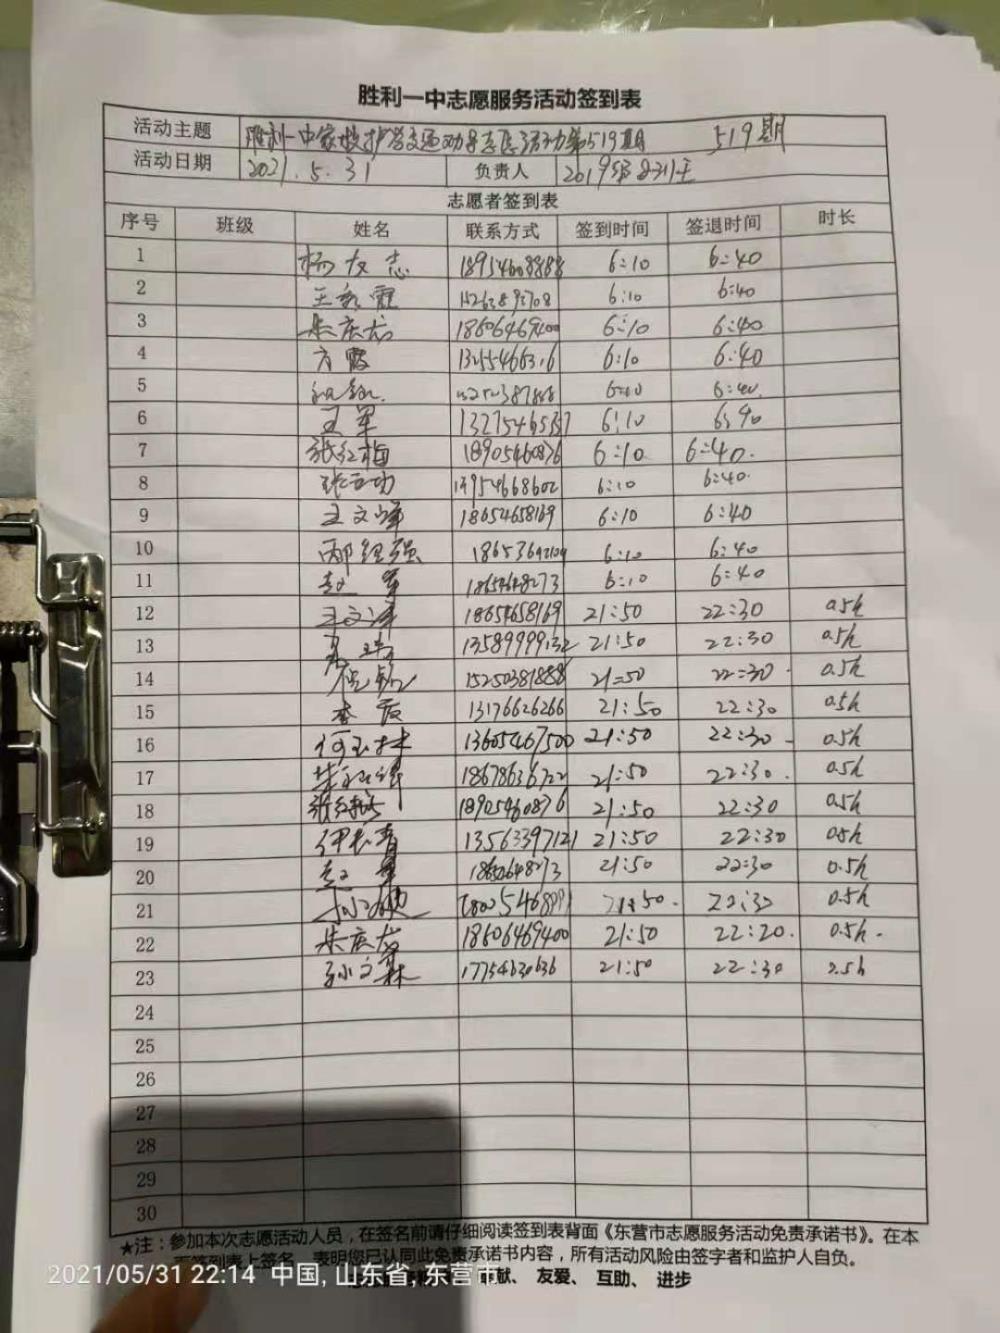 胜利一中志愿服务活动签到表
活动主题 胜利一中家校护学交通劝导志愿活动第519期 519期
活动日期 2021.5.31 负责人 2019级
志愿者签到表
序号 班级 姓名 联系方式 签到时间 签退时间 时长
1 杨友志 18954608888 6:10 6:40
2 6:10 6:40
3 朱庆龙 18606469400 6:10 6:40
4 方霞 6:10 6:40
5 6:10 6:40
6 王军 6:10
7 张红梅 18905460876 6:10 6:40
8 13954668602 6:10 6:40
9 王文峰 18654658169 6:10 6:40
10 6:10 6:40
11 赵军 18654648273 6:10 6:40
12 王文 18654658169 21:50 22:30 0.5h
13 13589999132 21:50 22:30 0.5h
14 21:50 22:30 0.5h
15 李霞 13176626266 21:50 22:30 0.5h
16 何玉林 13605467500 21:50 22:30 0.5h
17 18678636722 21:50 22:30 0.5h
18 张红梅 18905460876 21:50 22:30 0.5h
19 伊长青 13563397121 21:50 22:30 0.5h
20 赵军 21:50 22:30 0.5h
21 21:50 22:30 0.5h
22 朱庆龙 18606469400 21:50 22:20 0.5h
23 孙文霖 17754630636 21:50 22:30 0.5h
24
25
26
27
28
29
30
★注：参加本次志愿活动人员，在签名前请仔细阅读签到表背面《东营市志愿服务活动免责承诺书》。在本
签到表上签名，表明您已认同此免责承诺书内容，所有活动风险由签字者和监护人自负。
献、友爱、互助、进步
2021/05/31 22:14 中国, 山东省, 东营市